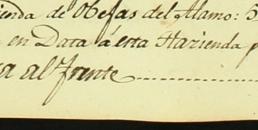 ienda de Obejas del Alamo: 5
en Data á esta Hazienda p
a al frente